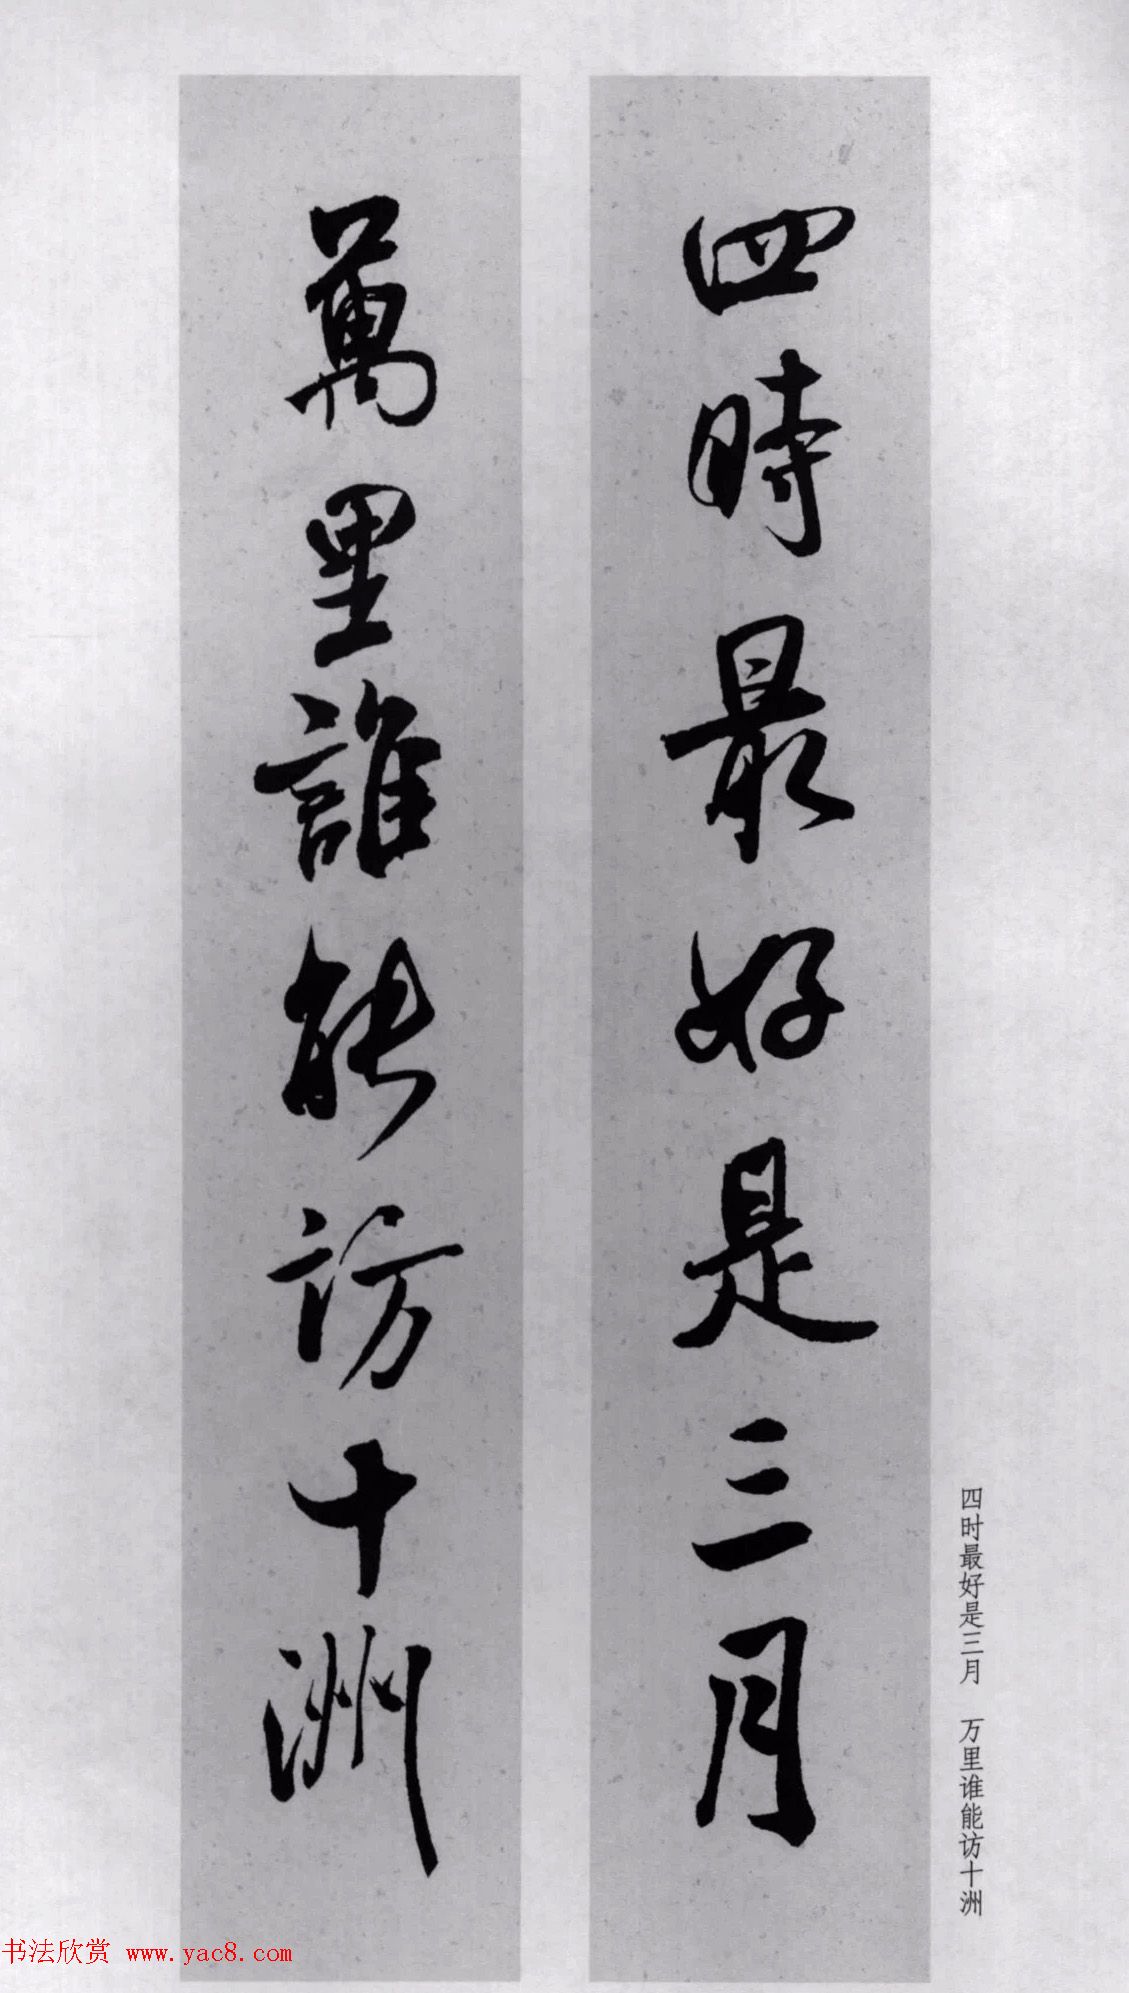 四時最好是三月
萬里誰能訪十洲
四时最好是三月　万里谁能访十洲
书法欣赏 www.yac8.com